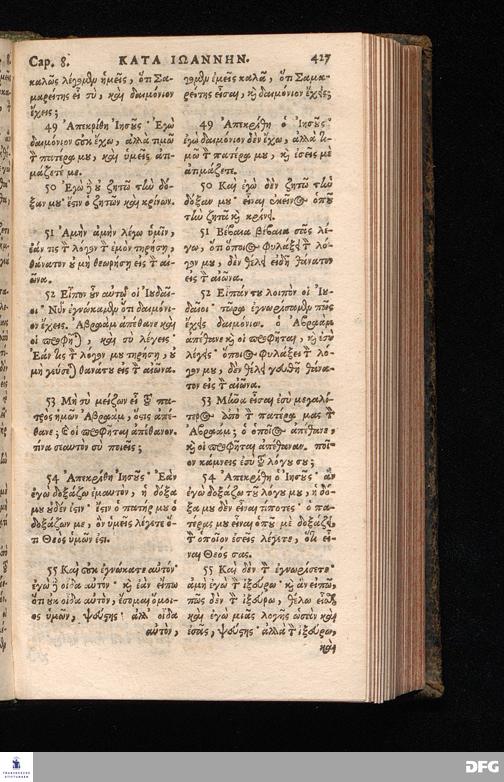 Cap. 8. ΚΑΤΑ ΙΩΑΝΝΗΝ. 427
καλῶς λέγομεν ἡμεῖς, ὅτι Σα-
μαρείτης εἶ σὺ, καὶ δαιμόνιον
ἔχεις;
49 Ἀπεκρίθη Ἰησοῦς· Ἐγὼ
δαιμόνιον οὐκ ἔχω, ἀλλὰ τιμῶ
τ̀ πατέρα μου, καὶ ὑμεῖς ἀτι-
μάζετέ με.
50 Ἐγὼ ῍ οὐ ζητῶ τὴν δό-
ξαν μου· ἔστιν ὁ ζητῶν καὶ κρίνων.
51 Ἀμὴν ἀμὴν λέγω ὑμῖν,
ἐάν τις τ̀ λόγον τ̀ ἐμὸν τηρήσῃ,
θάνατον οὐ μὴ θεωρήσῃ εἰς τ̀ αἰ-
ῶνα.
52 Εἶπον οὖν αὐτῷ οἱ Ἰουδαῖ-
οι· Νῦν ἐγνώκαμεν ὅτι δαιμόνι-
ον ἔχεις. Ἀβραὰμ ἀπέθανε καὶ
οἱ προφῆται, καὶ σὺ λέγεις·
Ἐάν τις τ̀ λόγον μου τηρήσῃ, οὐ
μὴ γεύσεται θανάτου εἰς τ̀ αἰῶνα.
53 Μὴ σὺ μείζων εἶ τοῦ πα-
τρὸς ἡμῶν Ἀβραὰμ, ὅστις ἀπέ-
θανε; καὶ οἱ προφῆται ἀπέθανον.
τίνα σεαυτὸν σὺ ποιεῖς;
54 Ἀπεκρίθη Ἰησοῦς· Ἐὰν
ἐγὼ δοξάζω ἐμαυτὸν, ἡ δόξα
μου οὐδέν ἐστιν· ἔστιν ὁ πατήρ μου ὁ
δοξάζων με, ὃν ὑμεῖς λέγετε ὅ-
τι Θεὸς ὑμῶν ἐστι.
55 Καὶ οὐκ ἐγνώκατε αὐτὸν·
ἐγὼ ῍ οἶδα αὐτὸν· καὶ ἐὰν εἴπω
ὅτι οὐκ οἶδα αὐτὸν, ἔσομαι ὅμοι-
ος ὑμῶν, ψεύστης· ἀλλ᾽ οἶδα
αὐτὸν,
γομεν ἐμεῖς καλὰ, ὅτι Σαμα-
ρείτης εἶσαι, καὶ δαιμόνιον ἔχεις;
49 Ἀπεκρίθη ὁ Ἰησοῦς·
ἐγὼ δαιμόνιον δὲν ἔχω, ἀλλὰ τι-
μῶ τ̀ πατέρα μου, καὶ ἐσεῖς μὲ
ἀτιμάζετε.
50 Καὶ ἐγὼ δὲν ζητῶ τὴν
δόξαν μου· εἶναι ἐκεῖνος ὁποῦ
τὴν ζητᾷ καὶ κρίνει.
51 Βέβαια βέβαια σᾶς λέ-
γω, ὅτι ὅποιος φυλάξει τ̀ λό-
γον μου, δὲν θέλει εἰδῆ θάνατον
εἰς τ̀ αἰῶνα.
52 Εἶπάν του λοιπὸν οἱ Ἰου-
δαῖοι· τώρα ἐγνωρίσαμεν πῶς
ἔχεις δαιμόνιον. ὁ Ἀβραὰμ
ἀπέθανε καὶ οἱ προφῆται, καὶ ἐσὺ
λέγεις· ὅποιος φυλάξει τ̀ λό-
γον μου, δὲν θέλει γευθῆ θάνα-
τον εἰς τ̀ αἰῶνα.
53 Μάνα εἶσαι ἐσὺ μεγαλί-
τερος ἀπὸ τ̀ πατέρα μας τ̀
Ἀβραὰμ; ὁ ὁποῖος ἀπέθανε,
καὶ οἱ προφῆται ἀπέθαναν. ποῖ-
ον κάμνεις ἐσὺ τοῦ λόγου σου;
54 Ἀπεκρίθη ὁ Ἰησοῦς· ἂν
ἐγὼ δοξάζω τοῦ λόγου μου, ἡ δό-
ξα μου δὲν εἶναι τίποτες· ὁ πα-
τέρας μου εἶναι ὁποῦ μὲ δοξάζει,
τ̀ ὁποῖον ἐσεῖς λέγετε, ὅτι εἶ-
ναι Θεός σας.
55 Καὶ δὲν τ̀ ἐγνωρίσετε·
ἀμὴ ἐγὼ τ̀ ἐξεύρω· καὶ ἂν εἰπῶ,
πῶς δὲν τ̀ ἐξεύρω, θέλω εἶσθαι
καὶ ἐγὼ μιᾶς λογῆς ὡσὰν καὶ
ἐσᾶς, ψεύστης· ἀλλὰ τ̀ ἐξεύρω,
καὶ
FRANCKESCHE STIFTUNGEN
DFG